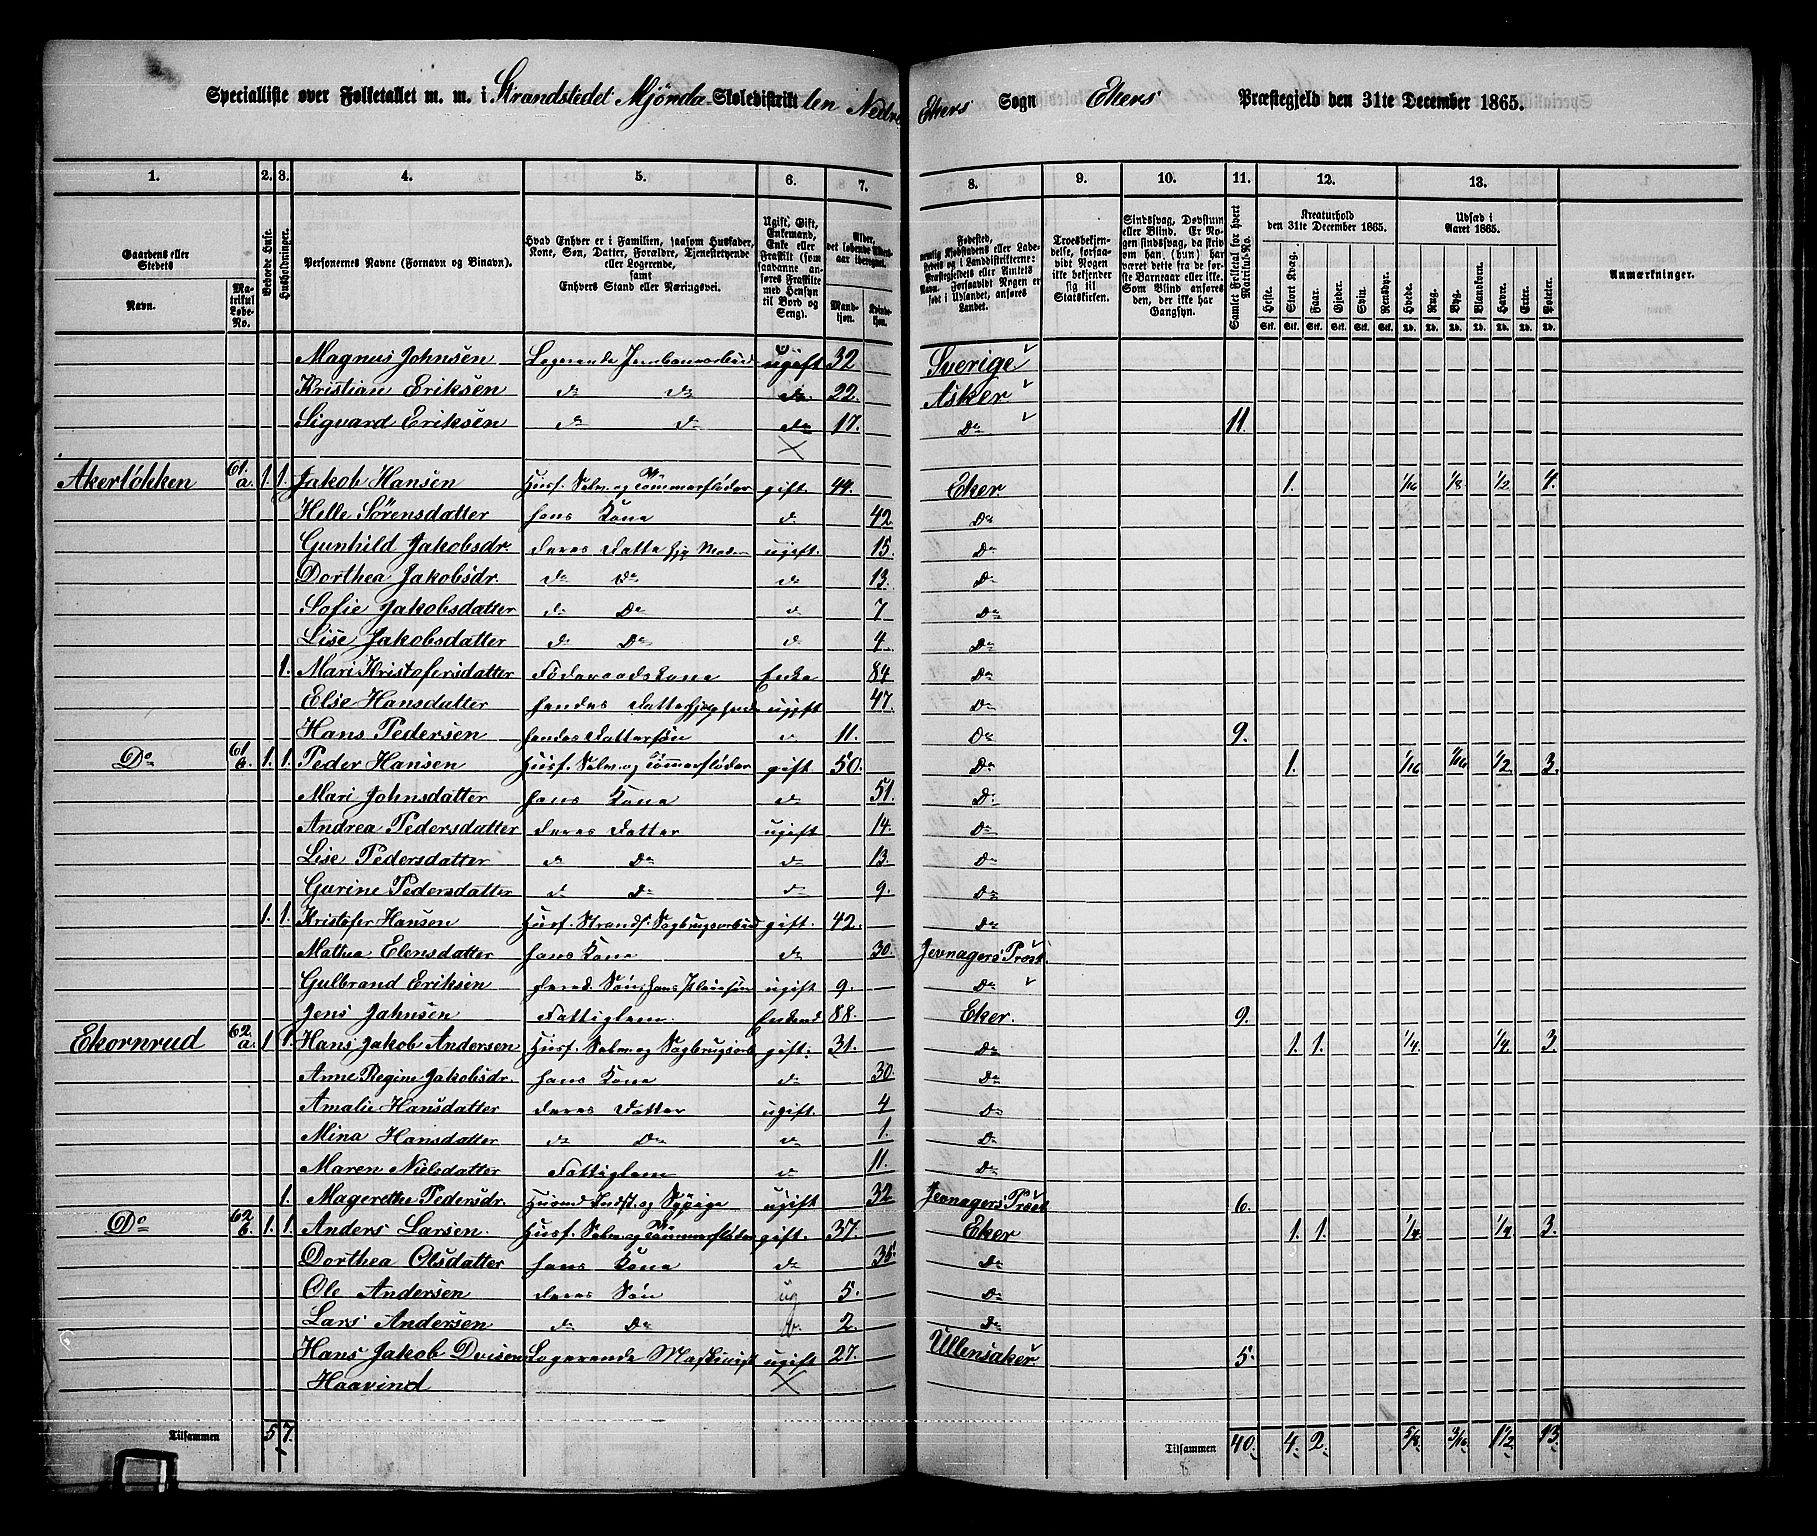 Specialliste over Folketallet m. m. i Strandstedet Mjønda Skoledistrikt len Nedre Ekers Sogn Ekers Præstegjeld den 31te December 1865.
1. 2. 3. 4. 5. 6. 7. 8. 9. 10. 11. 12. 13.
Gaardens eller Stedets Navn. Matrikul Løbe-No. Beboede Huse. Husholdninger. Personernes Navne (Fornavn og Binavn). Hvad Enhver er i Familien, saasom Husfader, Kone, Søn, Datter, Forældre, Tjenestetyende eller Logerende, samt Enhvers Stand eller Næringsvei. Ugift, Gift, Enkemand, Enke eller Fraskilt (som saadanne anføres Fraskilte med Hensyn til Bord og Seng). Alder, det løbende Alders-aar iberegnet. Mandkjøn. Kvindekjøn.
Anmærkninger.
Kreaturhold den 31te December 1865. Udsæd i Aaret 1865.
Heste. Stort Kvæg. Faar. Gjeder. Svin. Rensdyr. Hvede. Rug. Byg. Blandkorn. Havre. Erter. Poteter.
Magnus Johnsen Logerende Jernbanearbeid ugift 32 Sverige
Kristian Eriksen do do do 22. Asker
Sigvard Eriksen do do do 17. Do 11.
Akerløkken 61. a. 1. 1. Jakob Hansen Husf. Selve. og Tømmerfløder gift. 44. Eker 1. 1/16 1/8 1/2 4.
Helle Sørensdatter hans Kone d. 42. Do
Gunhild Jakobsdr. deres Datter ugift. 15. Do
Dorthea Jakobsdr. do Do d 13. Do
Sofie Jakobsdatter d. Do d 7 Do
Lise Jakobsdatter d Do d 4. Do
1. Mari Kristofersdatter Føderaadskone Enke 84 Do
Else Hansdatter hendes Datter ugift 47. Do
Hans Pedersen hendes Dattersøn d. 11. Do 9.
Do 61. b. 1. 1. Peder Hansen Husf. Selve. og Tømmerfløder gift 50. Do 1. 1/16 1/16 1/2 3.
Mari Johnsdatter hans Kone d 51. D.
Andrea Pedersdatter deres Datter ugift 14. Do
Lise Pedersdatter d Do do 13. Do
Gurine Pedersdatter d. Do do 9. Do
1. 1. Kristofer Hansen Husf. Strands. Sagbrugsarbeid gift. 42. Do
Mathea Elensdatter hans Kone do 30. Jevnagers Præst.
Gulbrand Eriksen ugift 9. Do
Jens Jahnsen Fattiglem. Enkemd 88. Eker. 9.
Ekornrud 62. a. 1. 1. Hans Jakob Andersen Husf. Selve. og Sagbrugsarb gift. 31. Do 1. 1. 1/4. 1/4. 3.
Anne Regine Jakobsdr. hans Kone do 30. Do
Amalie Hansdatter deres Datter ugift. 4 Do
Mina Hansdatter do Do d. 1. Do
Maren Nielsdatter Fattiglem d 11. Do
1. Magerethe Pedersdr. Inderst og Sypige ugift 32 Jevnagers Præst 6.
Do 62 b. 1. 1. Anders Larsen Husf. Selve. og Tømmerfløder gift. 37. Eker 1. 1. 1/4 1/4. 3.
Dorthea Olsdatter hans Kone do 35 Do
Ole Andersen deres Søn ug 5. Do
Lars Andersen d. Do 2. Do
Hans Jakob Dvisen Logerende Maskinist ugift 27. Ullensaker 5.
Haavind
Tilsammen 5 7. Tilsammen 40. 4. 2. 5/8 3/16 1 1/2 13.
8